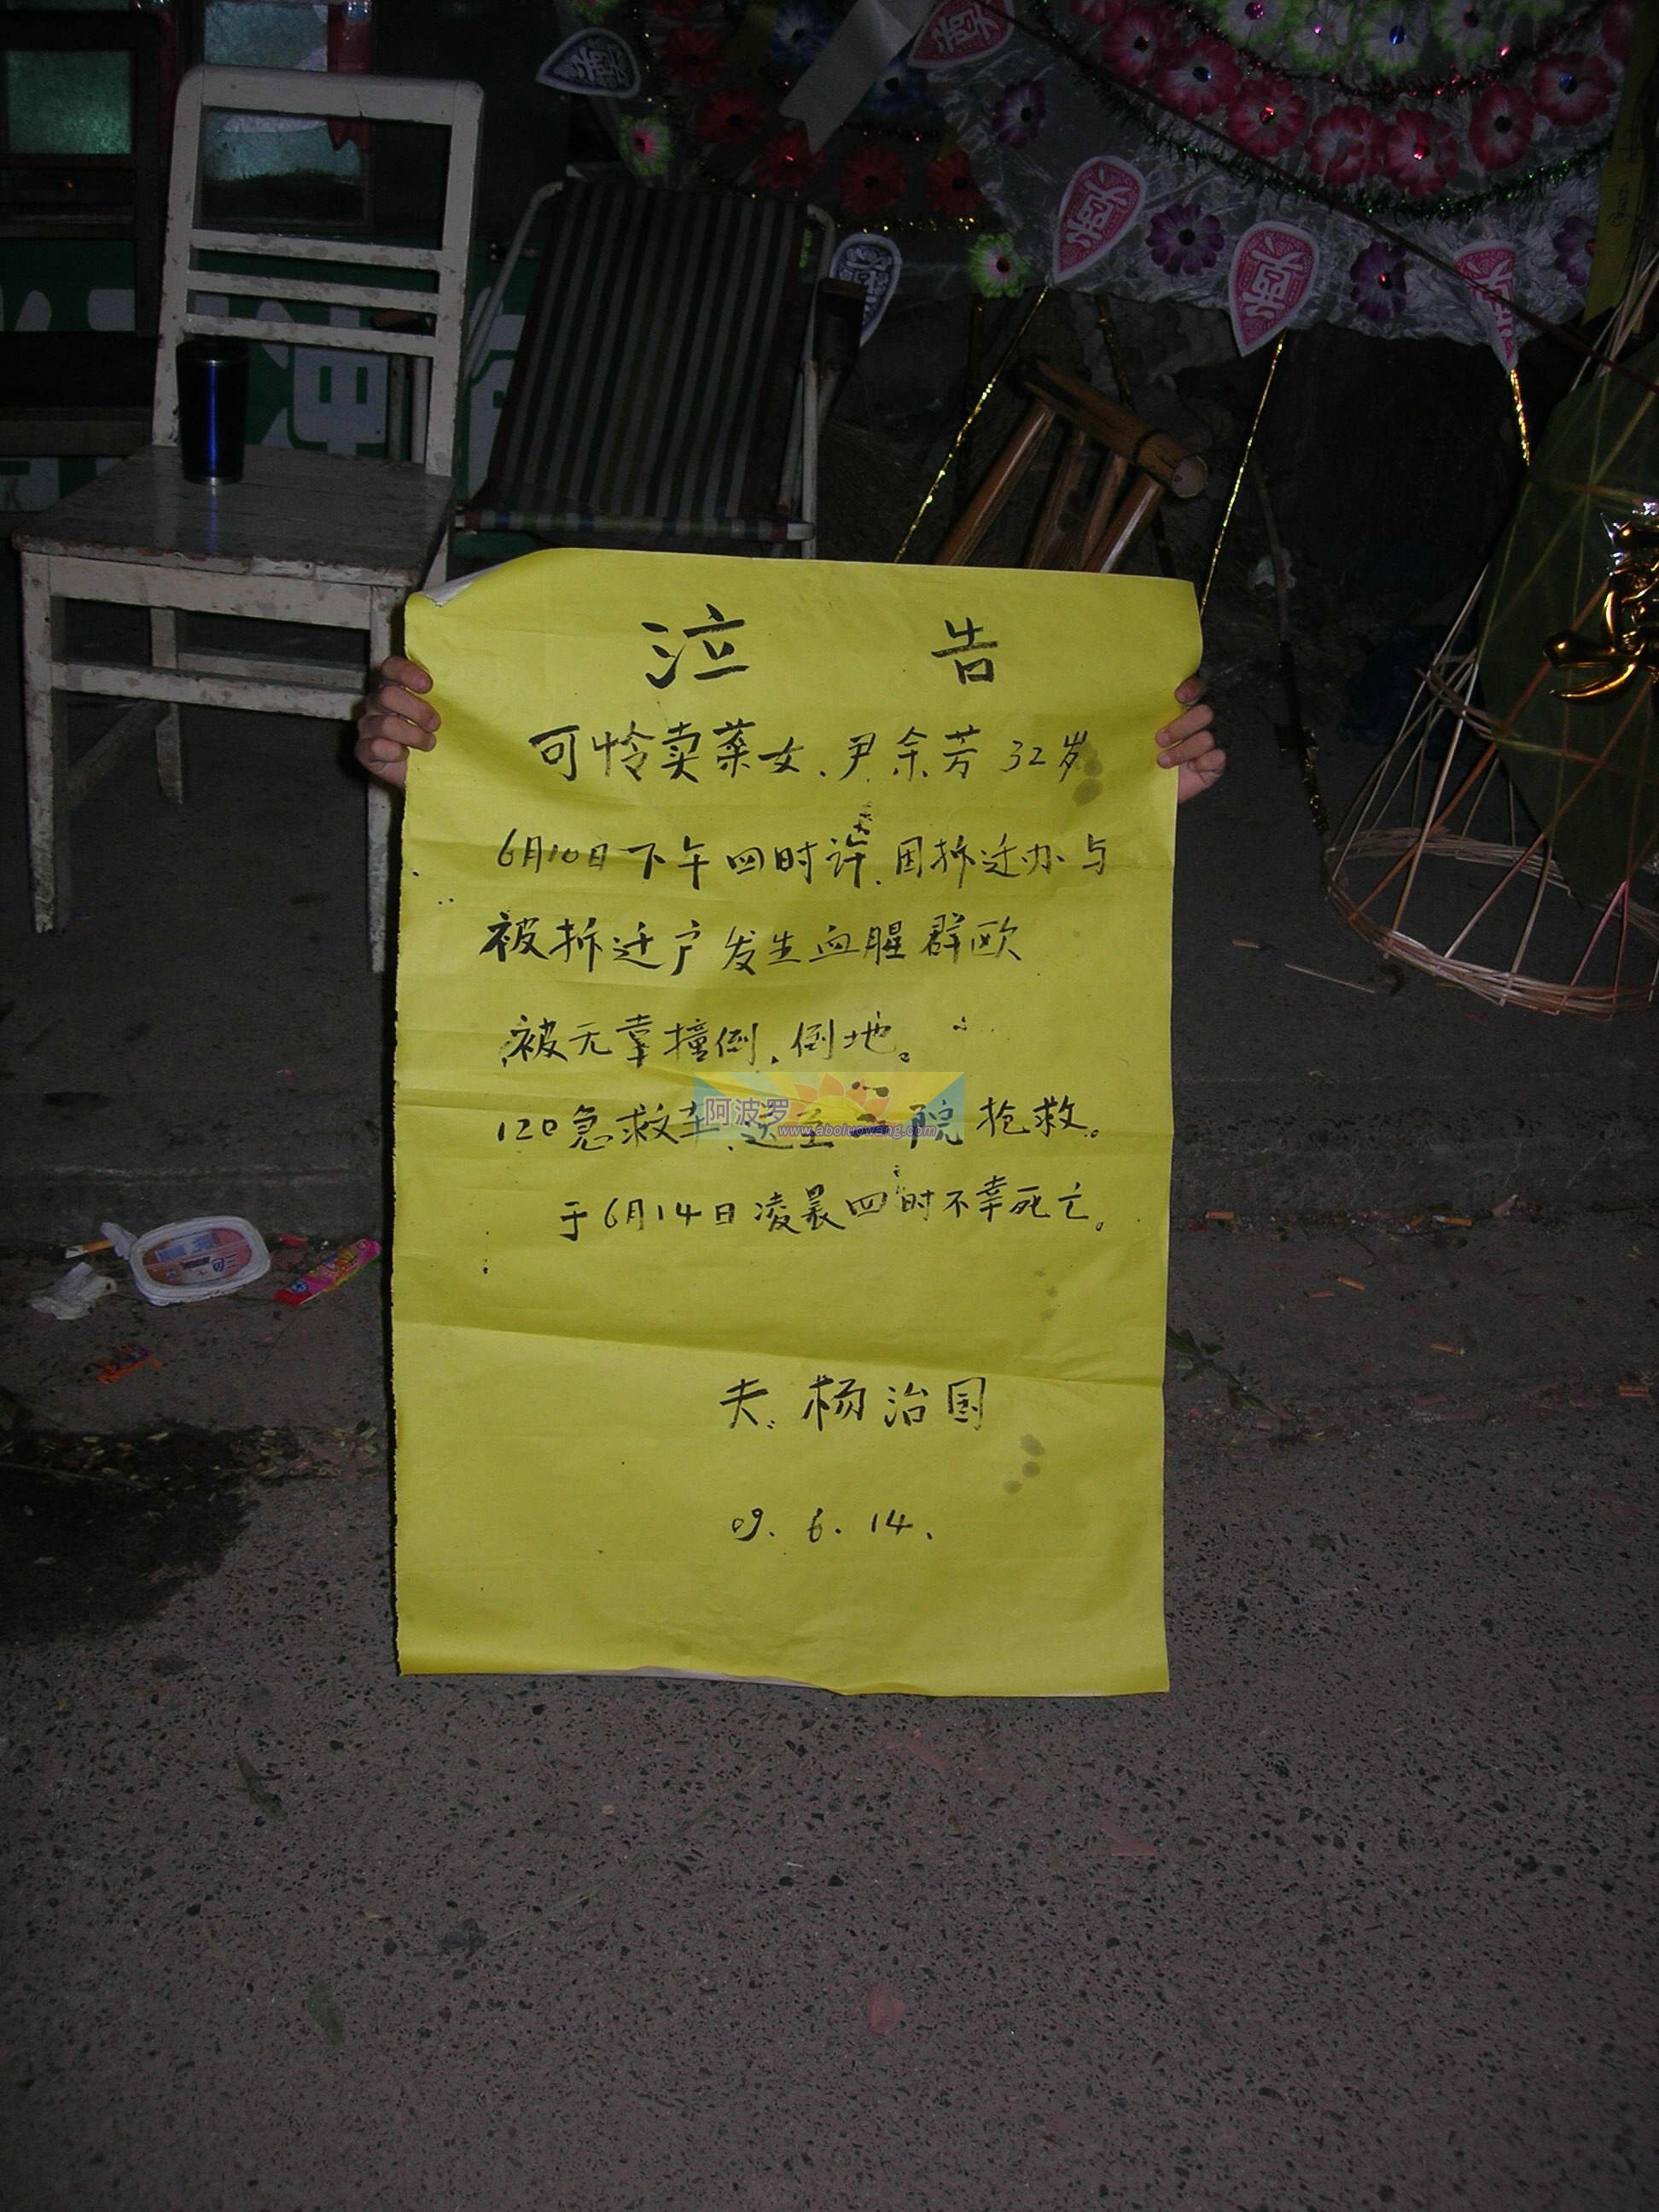 泣 告
可怜卖菜女、尹余芳 32岁
6月10日下午四时许、因拆迁办与
被拆迁户发生血腥群欧
被无辜撞倒、倒地。
120急救车、送至二院抢救。
于6月14日凌晨四时不幸死亡。
夫: 杨治国
09. 6. 14.
阿波罗
www.aboluowang.com